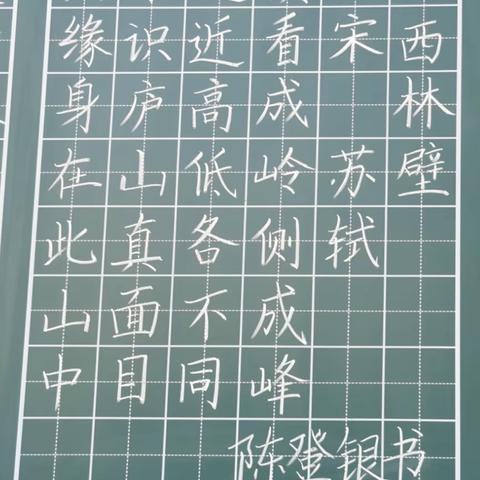 西林壁
宋 苏轼
看成岭侧成峰
近高低各不同
识庐山真面目
缘身在此山中
陈登银书